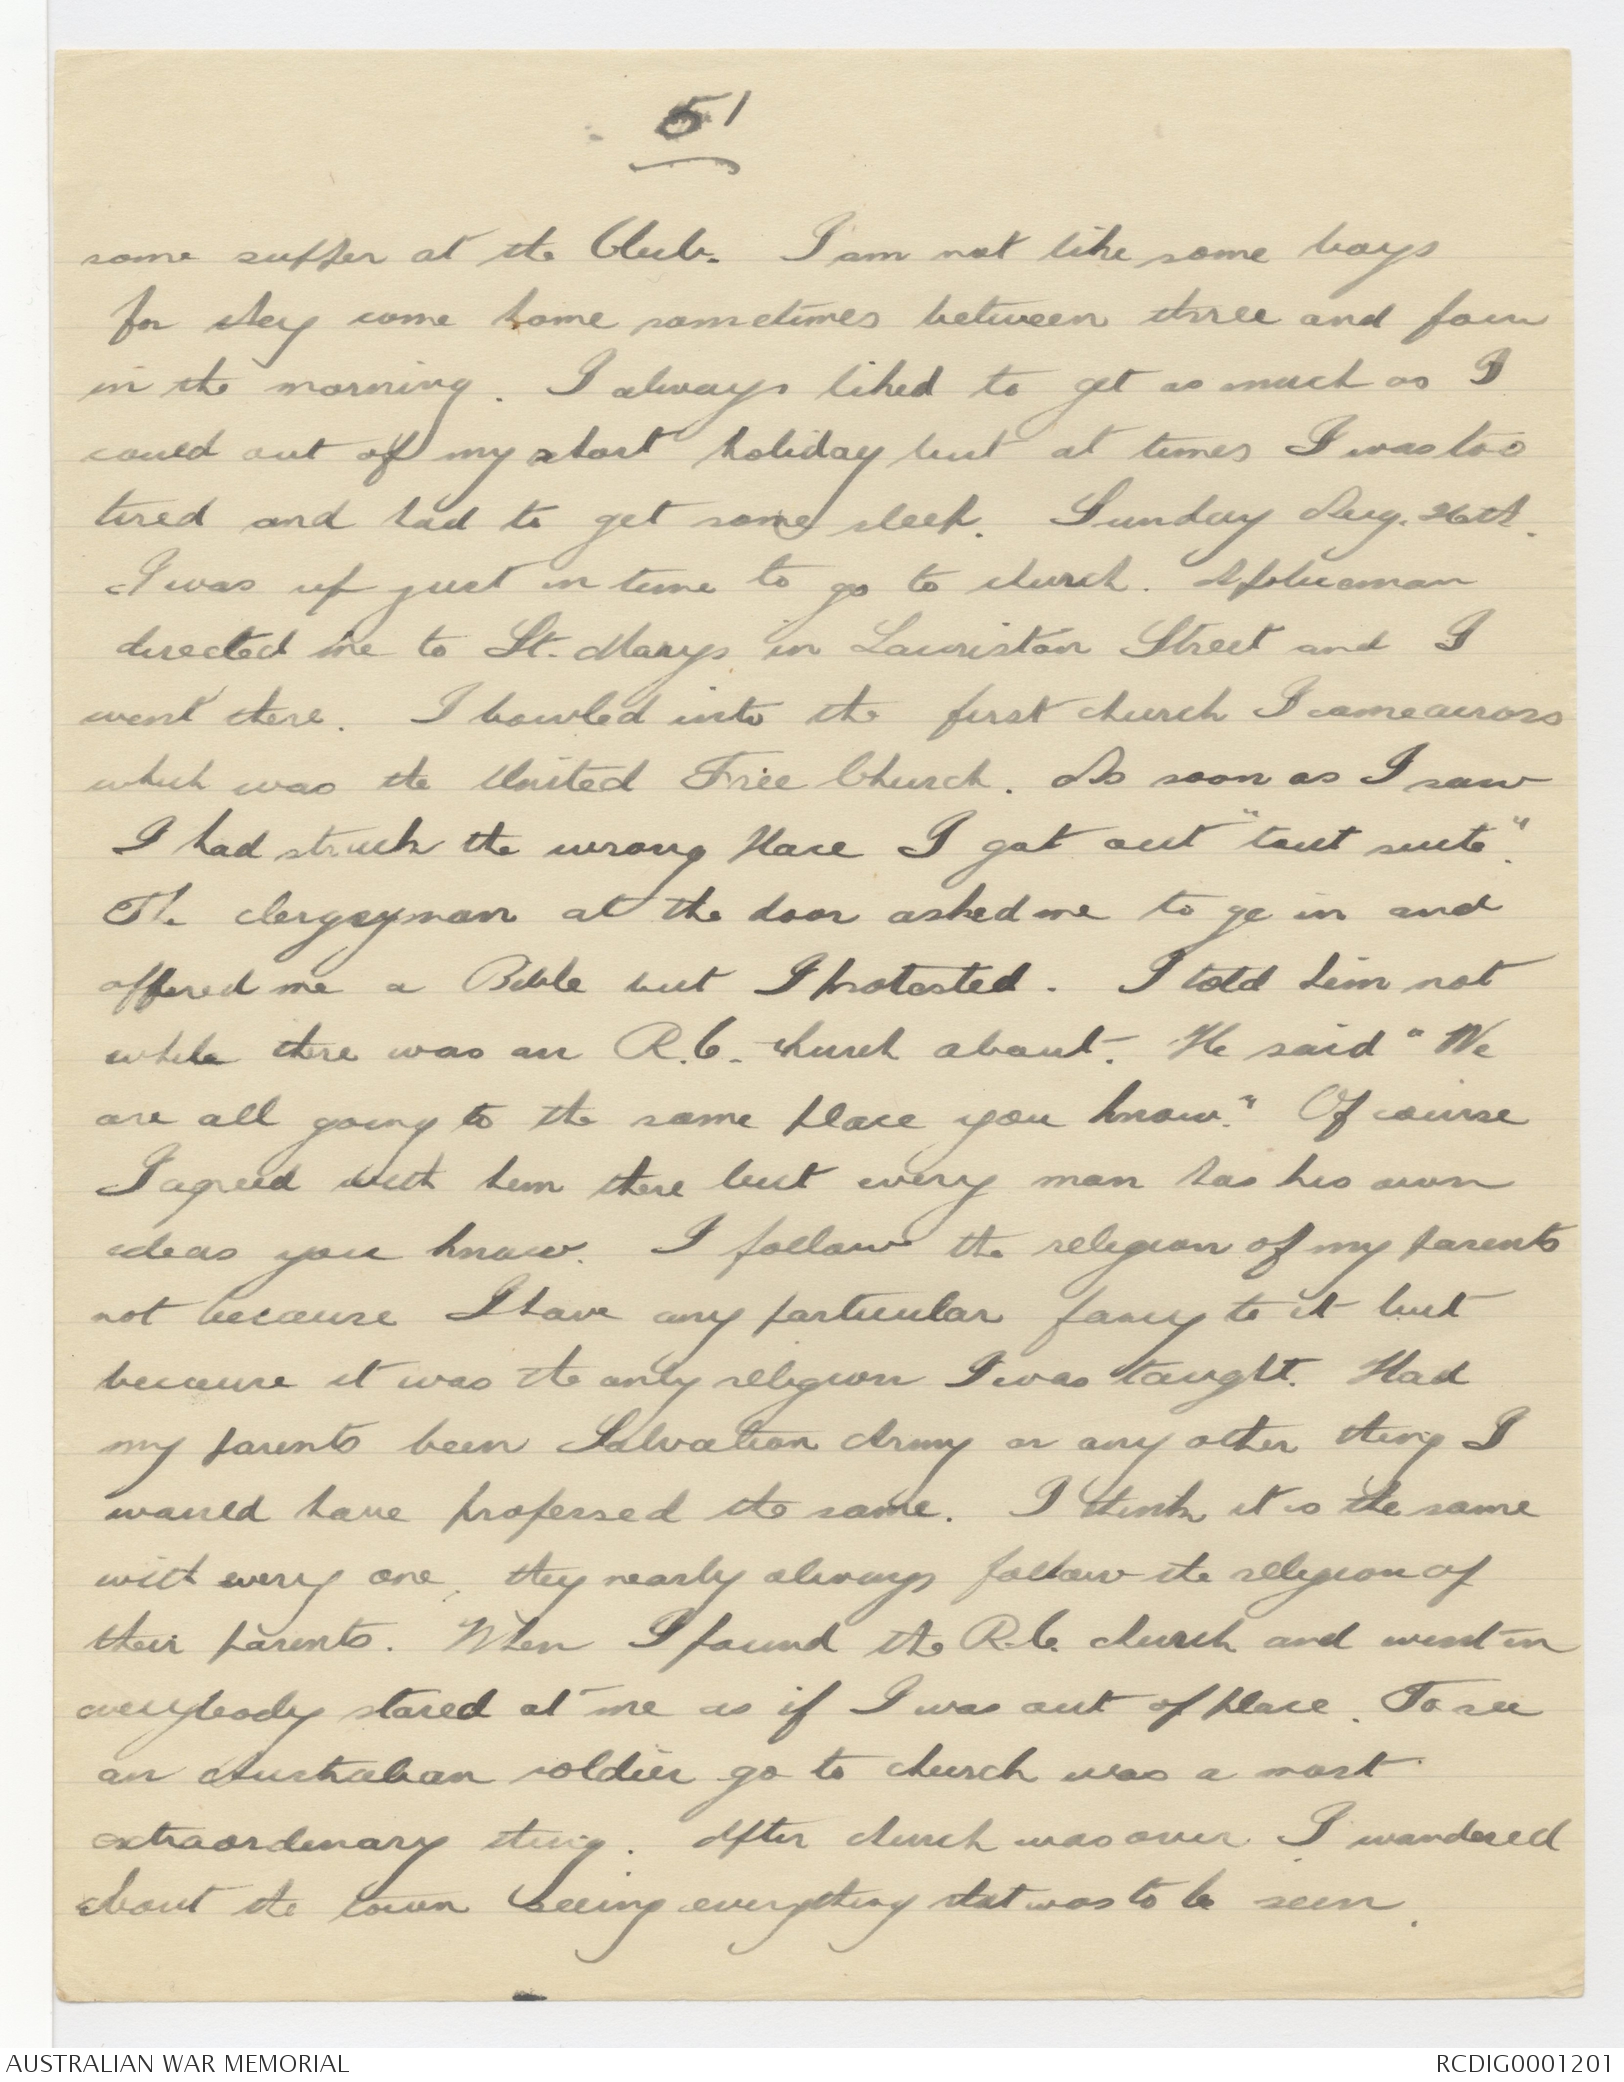 51
some supper at the Club. I am not like some boys
for they come home sometimes between three and four
in the morning. I always liked to get as much as I
could out of my short holiday but at times I was too
tired and had to get some sleep. Sunday Aug. 26th.
I was up just in time to go to church. A policeman
directed me to St. Marys in Lauriston Street and I
went there. I bowled into the first church I came across
which was the United Free Church. As soon as I saw
I had struck the wrong place I got out "tout suite".
The clergyman at the door asked me to go in and
offered me a Bible but I protested. I told him not
while there was an R.C. church about. He said "We
are all going to the same place you know." Of course
I agreed with him there but every man has his own
ideas you know. I follow the religion of my parents
not because I have any particular fancy to it but
because it was the only religion I was taught. Had
my parents been Salvation Army or any other thing I
would have professed the same. I think it is the same
with every one, they nearly always follow the religion of
their parents. When I found the R.C. church and went in
everybody stared at me as if I was out of place. To see
an Australian soldier go to church was a most
extraordinary thing. After church was over I wandered
about the town seeing everything that was to be seen.
AUSTRALIAN WAR MEMORIAL
RCDIG0001201